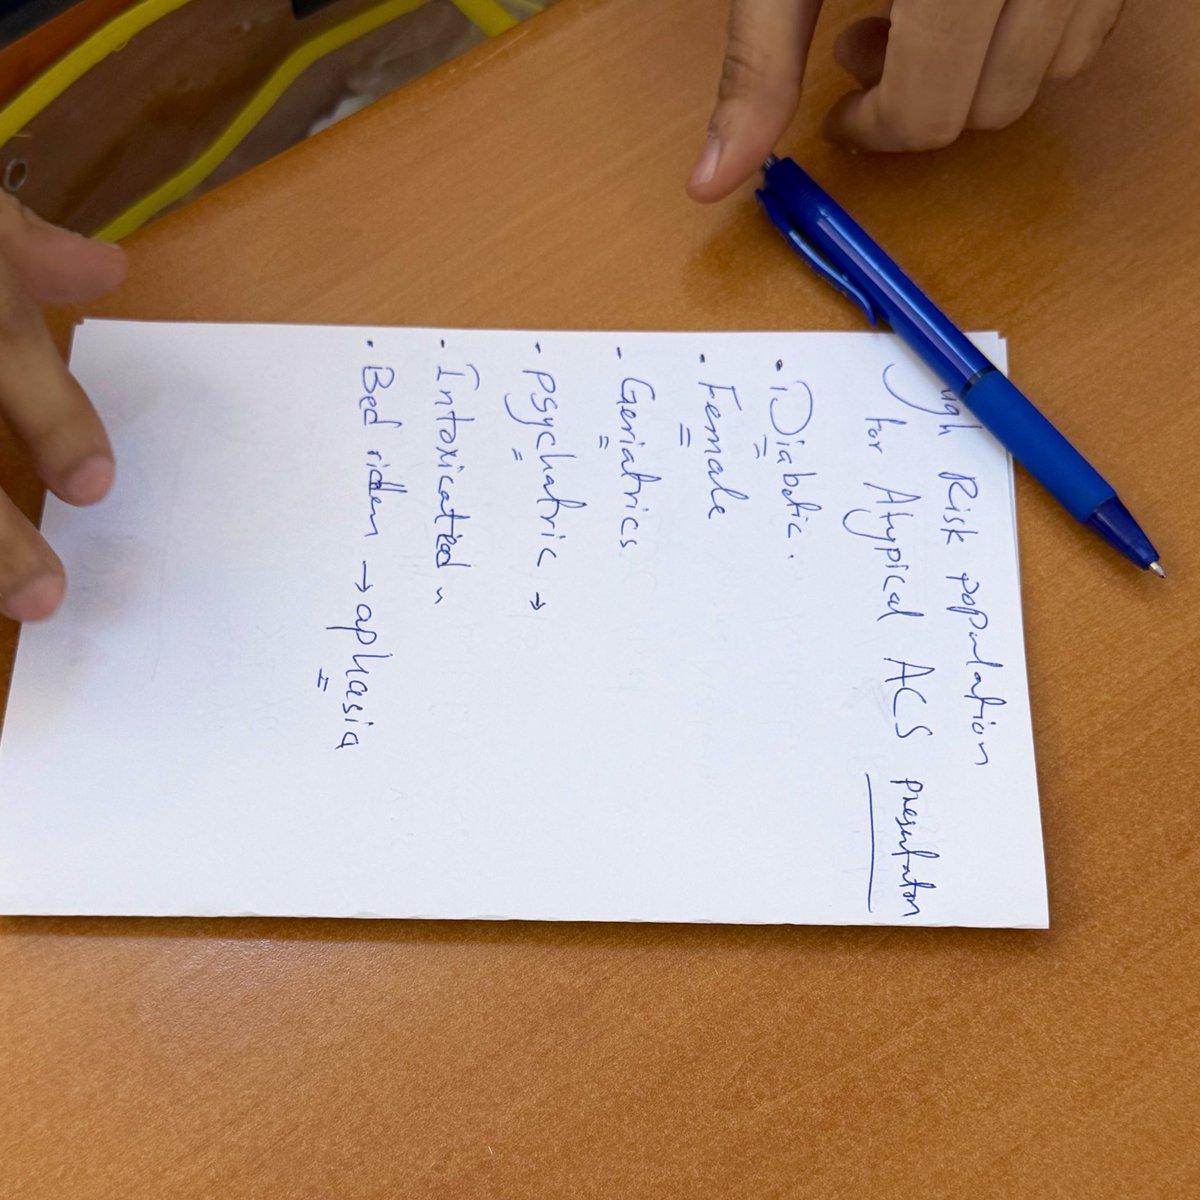 High Risk population
for Atypical ACS presentation
• Diabetic.
• Female
- Geriatrics
- Psychatric →
• Intoxicated
• Bed riden → aphasia